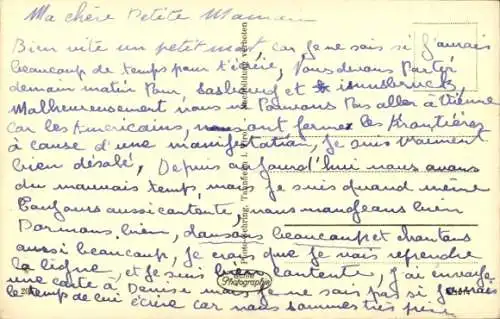 Ma chère Petite Maman
Bien vite un petit mot car je ne sais si j'aurais
beaucoup de temps pour t'écrire, Nous devons Partir
demain matin Pour Salsbourg et innsbruck,
Malheureusement nous ne Pouvons Pas aller à Vienne
car les Américains, nous ont fermés les frontières
à cause d'une manifestation, Je suis vraiment
bien désolé, Depuis aujourd'hui nous avons
du mauvais temps, mais je suis quand même
toujours aussi contente, nous mangeons bien
Dormons bien, dansons beaucoup et chantons
aussi beaucoup, je crois que je vais reprendre
la ligne, et je suis bien contente, j'ai envoyé
une carte à Denise mais je ne sais pas si j'aurais
le temps de lui écrire car nous sommes très
Photographie